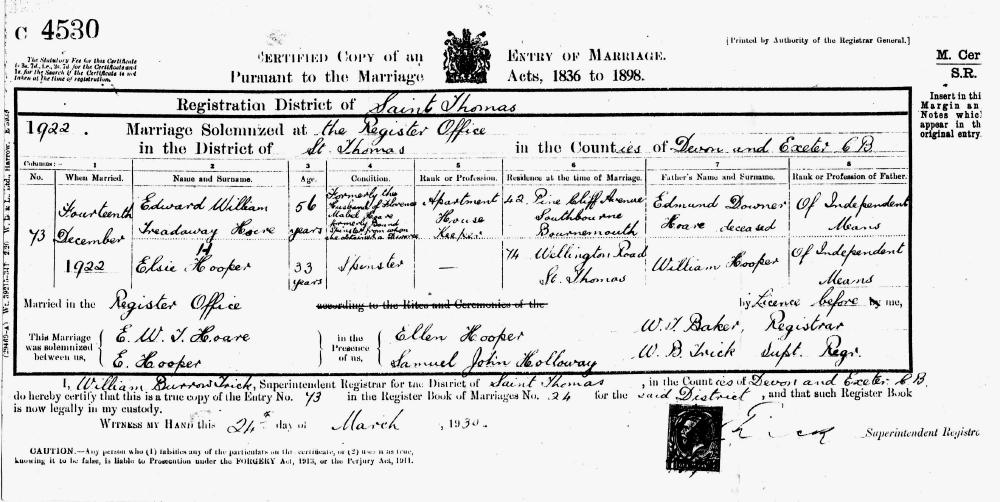 C 4530
The Statutory Fee for this Certificate
is 2s. 7d.
for the Search if the Certificate is not
taken at the time of registration.
CERTIFIED COPY of an ENTRY OF MARRIAGE.
Pursuant to the Marriage Acts, 1836 to 1898.
[Printed by Authority of the Registrar General.]
M. Cer
S.R.
Insert in thi
Margin an
Notes whic
appear in th
original entry.
Registration District of Saint Thomas
1922. Marriage Solemnized at the Register Office
in the District of St. Thomas in the Counties of Devon and Exeter C B
Columns:— 1 2 3 4 5 6 7 8
No. When Married. Name and Surname. Age. Condition. Rank or Profession. Residence at the time of Marriage. Father's Name and Surname. Rank or Profession of Father.
73 Fourteenth December 1922
Edward William Treadaway Hoare
56 years
Formerly the Husband of Florence Mabel Hoare formerly Bound Spinster from whom she obtained a Divorce
Apartment House Keeper
42, Pine Cliff Avenue Southbourne Bournemouth
Edmund Downer Hoare deceased
Of Independent Means
Elsie Hooper
33 years
Spinster
—
74 Wellington Road St. Thomas
William Hooper
Of Independent Means
Married in the Register Office according to the Rites and Ceremonies of the by Licence before by me,
This Marriage was solemnized between us,
E. W. T. Hoare
E. Hooper
in the Presence of us,
Ellen Hooper
Samuel John Holloway
W. J. Baker, Registrar
W. B. Trick Supt. Regr.
I, William Burrow Trick, Superintendent Registrar for the District of Saint Thomas, in the Counties of Devon and Exeter C B,
do hereby certify that this is a true copy of the Entry No. 73 in the Register Book of Marriages No. 24 for the said District, and that such Register Book
is now legally in my custody.
WITNESS MY HAND this 24th day of March, 1930.
Superintendent Registra
CAUTION.—Any person who (1) falsifies any of the particulars on the certificate, or (2) uses it as true,
knowing it to be false, is liable to Prosecution under the FORGERY Act, 1913, or the Perjury Act, 1911.